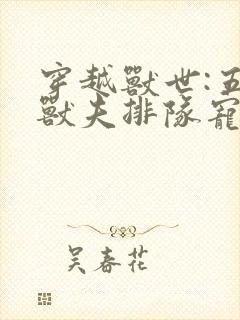 穿越獸世:五
獸夫排隊寵
吴春花